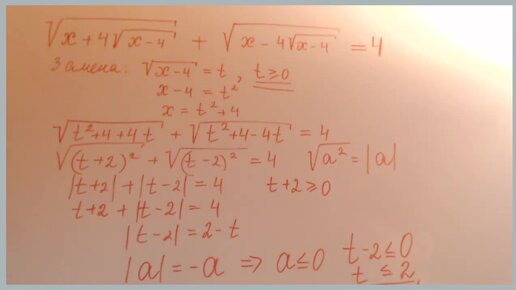 √(x+4√(x-4)) + √(x-4√(x-4)) = 4
Замена: √(x-4) = t, t≥0
x-4 = t²
x = t²+4
√(t²+4+4t) + √(t²+4-4t) = 4
√((t+2)²) + √((t-2)²) = 4 √(a²) = |a|
|t+2| + |t-2| = 4 t+2≥0
t+2 + |t-2| = 4
|t-2| = 2-t
|a| = -a ⇒ a≤0 t-2≤0
t≤2